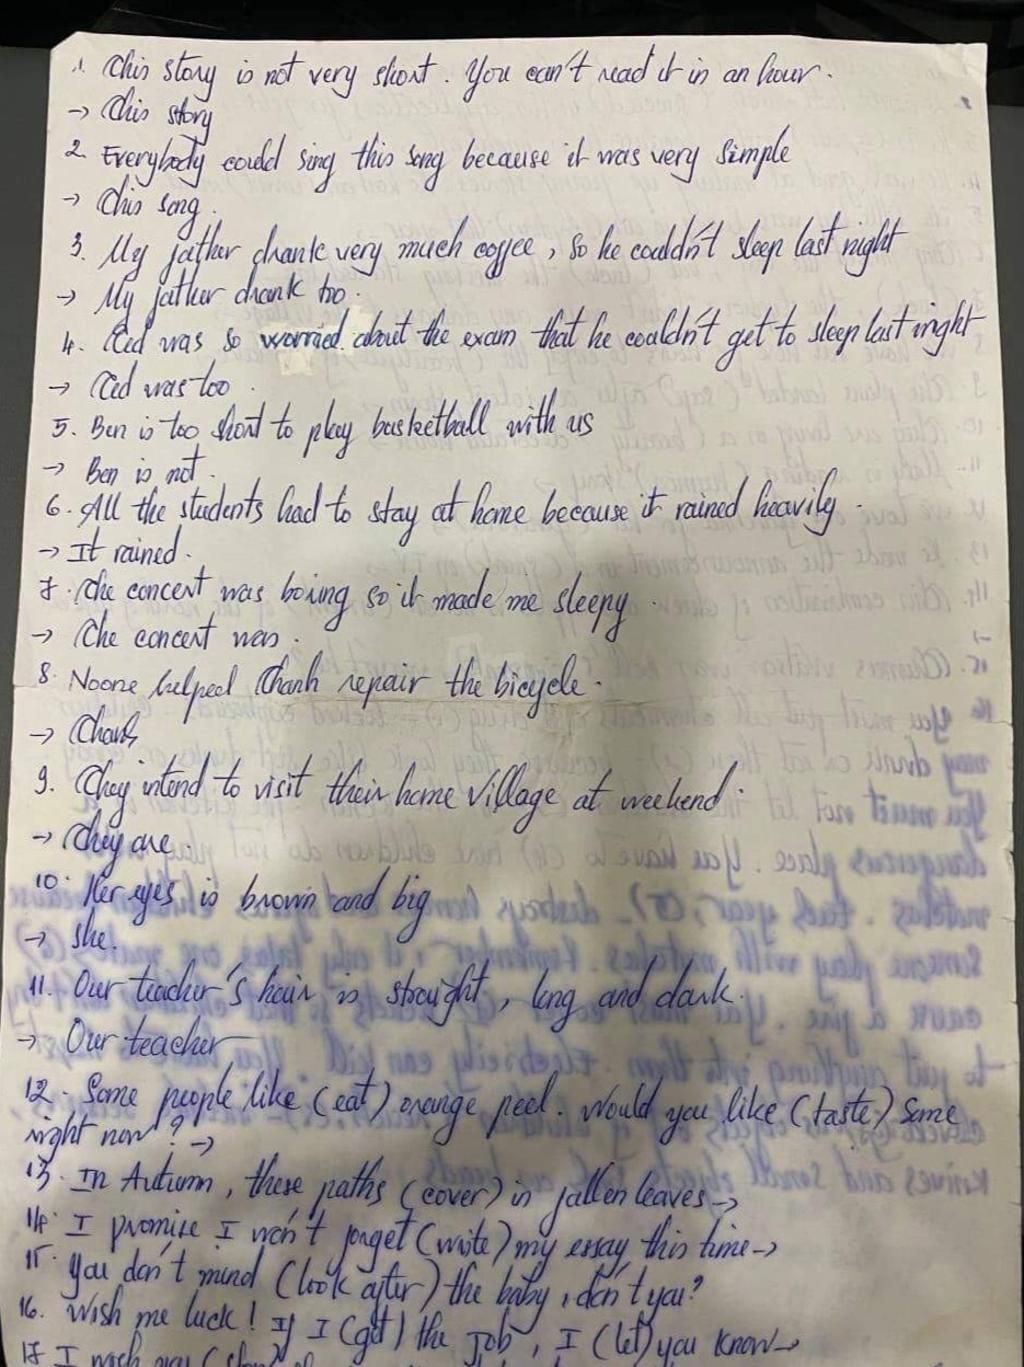 1. This story is not very short. You can't read it in an hour.
→ This story
2. Everybody could sing this song because it was very simple
→ This song.
3. My father drank very much coffee, so he couldn't sleep last night
→ My father drank too.
4. Ted was so worried about the exam that he couldn't get to sleep last night
→ Ted was too.
5. Ben is too short to play basketball with us
→ Ben is not.
6. All the students had to stay at home because it rained heavily.
→ It rained.
7. The concert was boring so it made me sleepy.
→ The concert was.
8. Noone helped Thanh repair the bicycle.
→ Thanh
9. They intend to visit their home village at weekend.
→ They are.
10. Her eyes is brown and big
→ She.
11. Our teacher's hair is straight, long and dark.
→ Our teacher
12. Some people like (eat) orange peel. Would you like (taste) some
right now? →
13. In Autumn, these paths (cover) in fallen leaves →
14. I promise I won't forget (write) my essay this time →
15. You don't mind (look after) the baby, don't you?
16. Wish me luck! If I (get) the job, I (let) you know →
17 I wish you